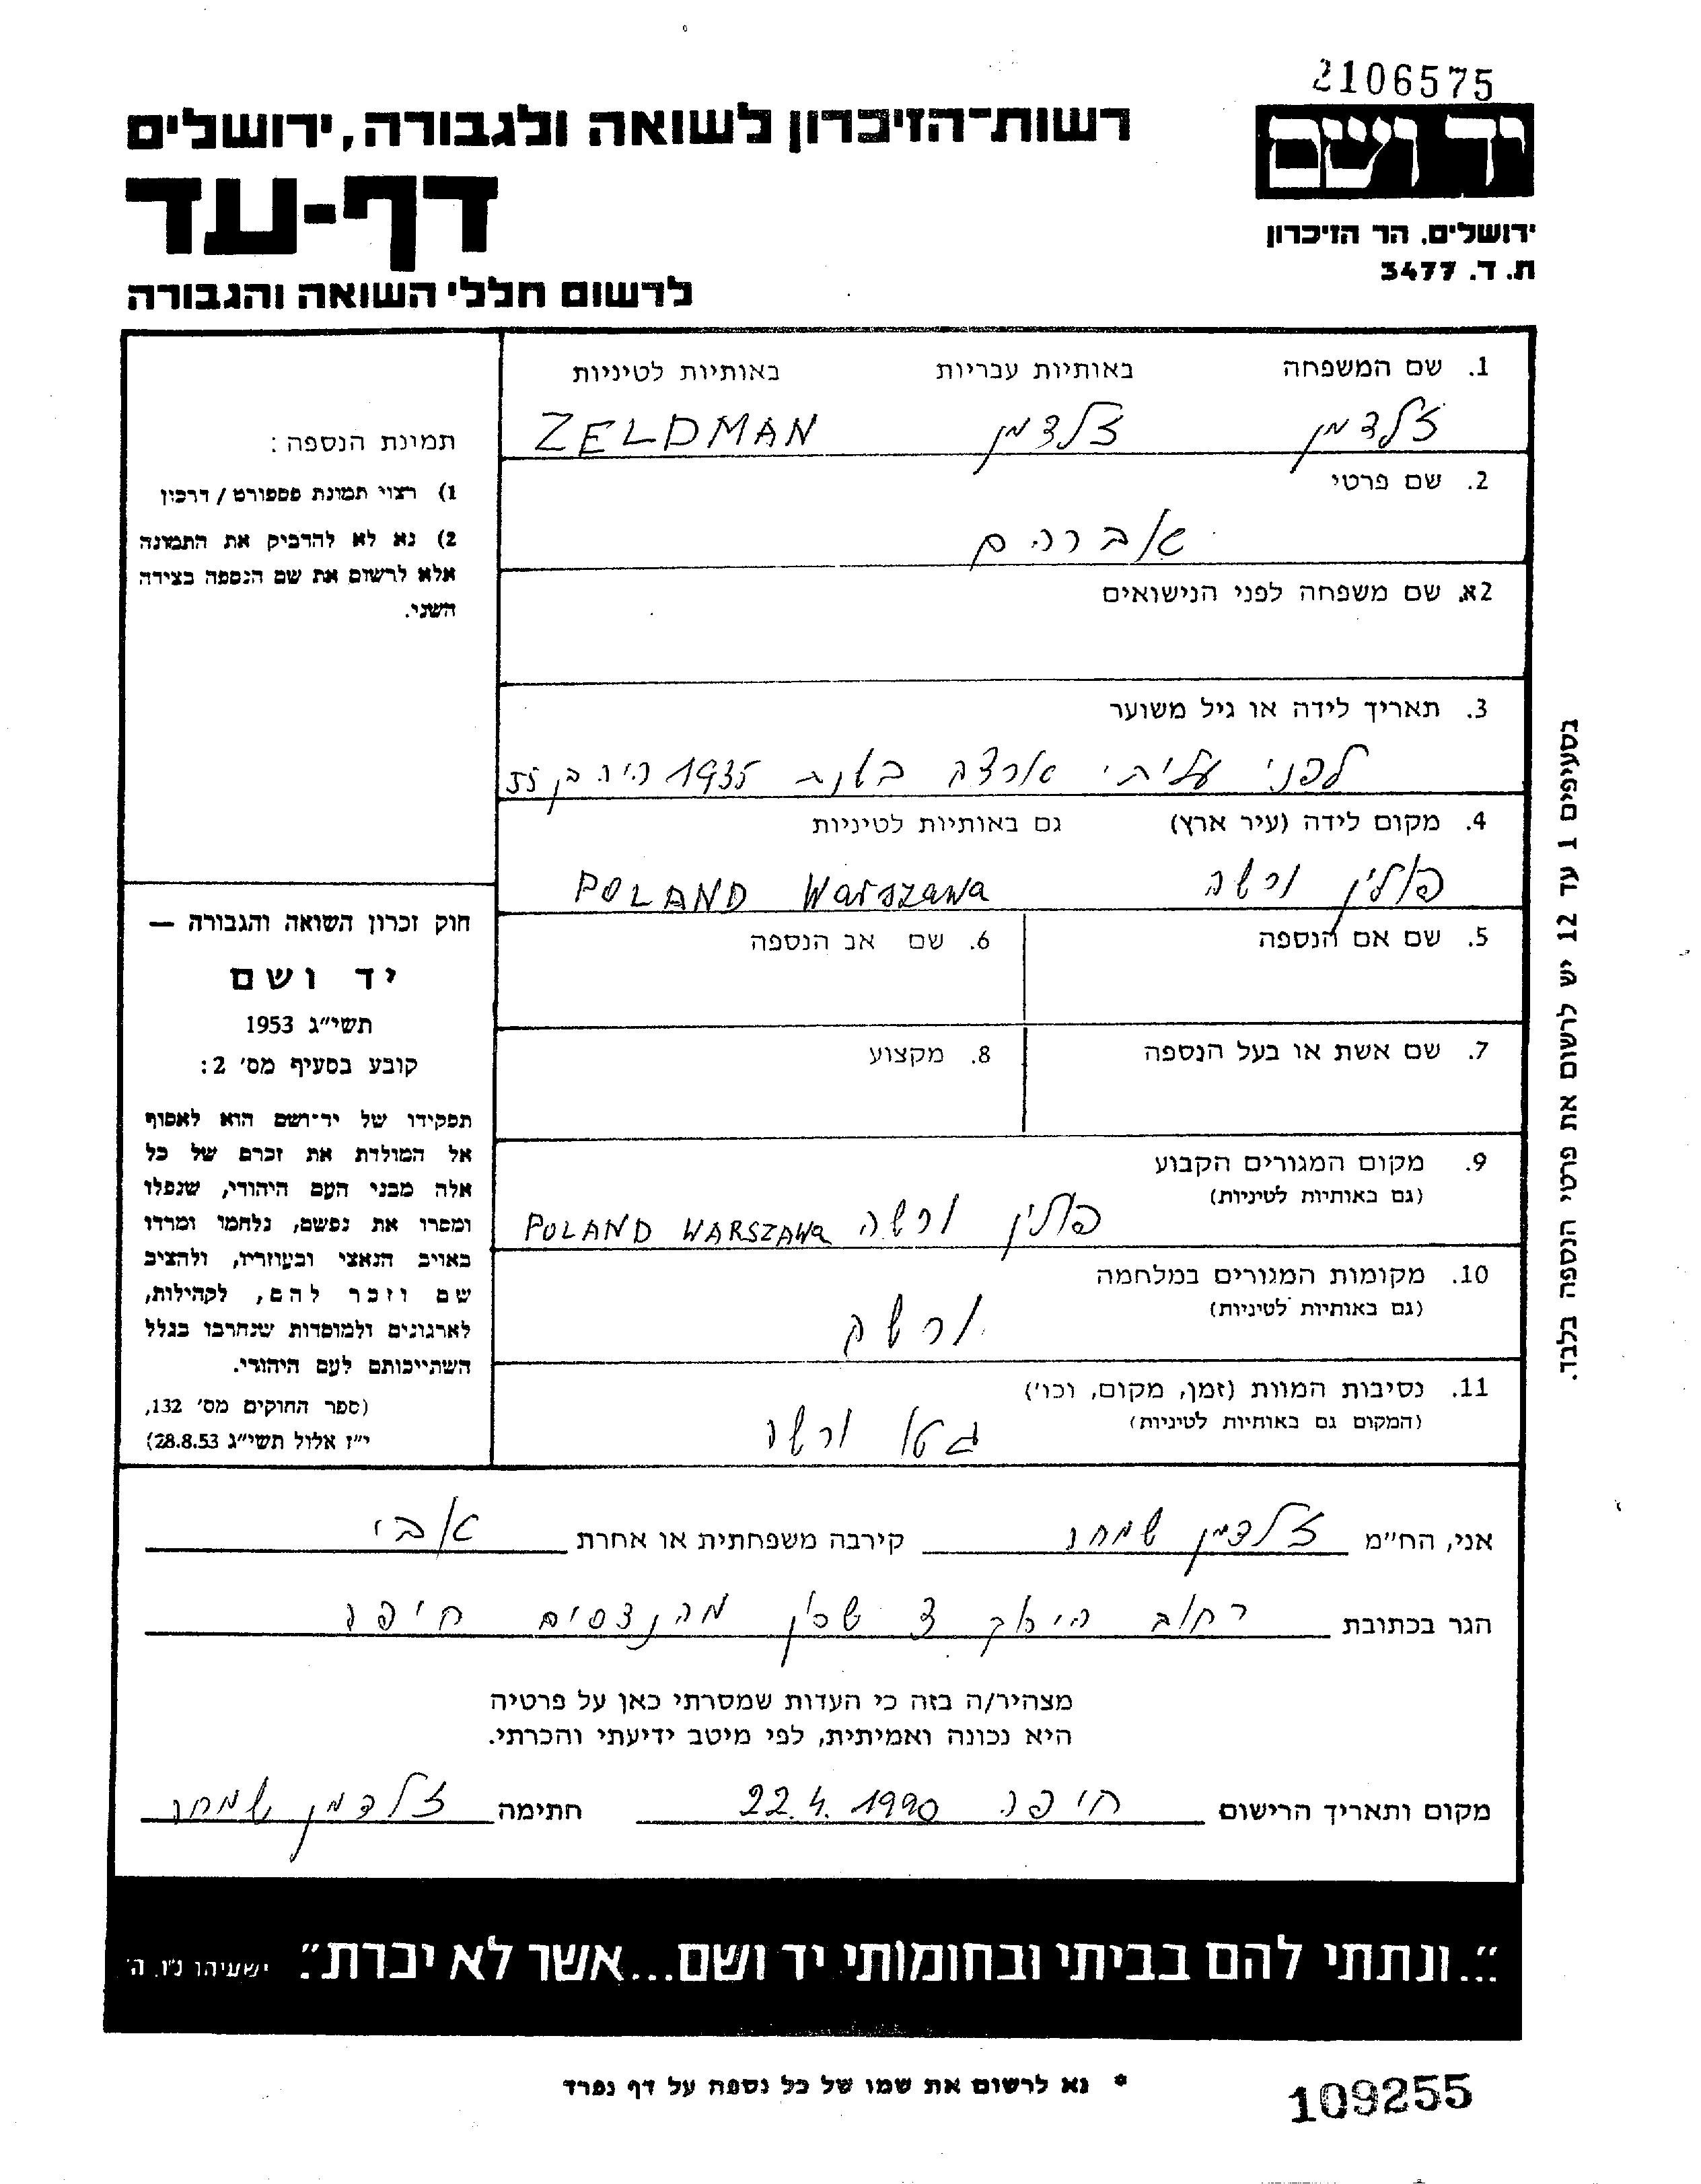 2106575
יד ושם
ירושלים, הר הזיכרון
ת. ד. 3477
רשות-הזיכרון לשואה ולגבורה, ירושלים
דף-עד
לרשום חללי השואה והגבורה
1. שם המשפחה באותיות עבריות באותיות לטיניות
זלדמן זלדמן ZELDMAN
2. שם פרטי
אברהם
2א. שם משפחה לפני הנישואים
3. תאריך לידה או גיל משוער
לפני עליתי ארצה בשנת 1935 היה בן 55
4. מקום לידה (עיר ארץ) גם באותיות לטיניות
פולין ורשה POLAND Warszawa
5. שם אם הנספה 6. שם אב הנספה
7. שם אשת או בעל הנספה 8. מקצוע
9. מקום המגורים הקבוע
(גם באותיות לטיניות)
פולין ורשה POLAND WARSZAWa
10. מקומות המגורים במלחמה
(גם באותיות לטיניות)
ורשה
11. נסיבות המוות (זמן, מקום, וכו')
(המקום גם באותיות לטיניות)
גטו ורשה
תמונת הנספה :
1) רצוי תמונת פספורט / דרכון
2) נא לא להדביק את התמונה
אלא לרשום את שם הנספה בצידה
השני.
חוק זכרון השואה והגבורה —
יד ושם
תשי"ג 1953
קובע בסעיף מס' 2:
תפקידו של יד-ושם הוא לאסוף
אל המולדת את זכרם של כל
אלה מבני העם היהודי, שנפלו
ומסרו את נפשם, נלחמו ומרדו
באויב הנאצי ובעוזריו, ולהציב
שם וזכר להם, לקהילות,
לארגונים ולמוסדות שנחרבו בגלל
השתייכותם לעם היהודי.
(ספר החוקים מס' 132,
י"ז אלול תשי"ג 28.8.53)
בסעיפים 1 עד 12 יש לרשום את פרטי הנספה בלבד.
אני, הח"מ זלדמן שמחה קירבה משפחתית או אחרת אבי
הגר בכתובת רחוב שכון חיפה
מצהיר/ה בזה כי העדות שמסרתי כאן על פרטיה
היא נכונה ואמיתית, לפי מיטב ידיעתי והכרתי.
מקום ותאריך הרישום חיפה 22.4.1990 חתימה זלדמן שמחה
"...ונתתי להם בביתי ובחומותי יד ושם...אשר לא יכרת". ישעיהו נ"ו, ה'
* נא לרשום את שמו של כל נספה על דף נפרד
109255